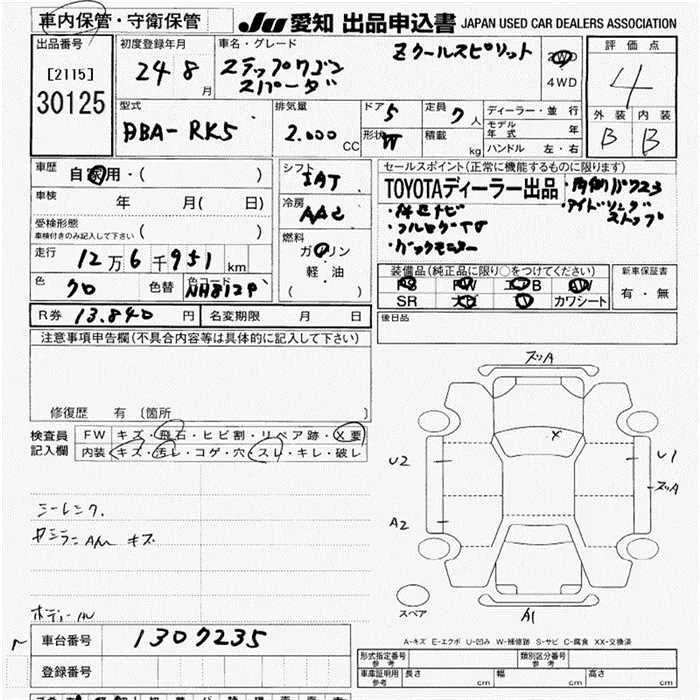 車内保管・守衛保管 JU 愛知 出品申込書 JAPAN USED CAR DEALERS ASSOCIATION
出品番号 初度登録年月 車名・グレード Zクールスピリット 2WD 評価点
[2115] 24 8月 ステップワゴン スパーダ 4WD 4
30125 型式 排気量 ドア 5 定員 7人 ディーラー・並行 外装 内装
DBA-RK5 2.000CC 形状 W 積載 kg モデル年式 年 B B
ハンドル 左・右
車歴 自家用・( ) シフト IAT セールスポイント(正常に機能するものに限ります)
車検 年 月( 日) 冷房 AAC TOYOTAディーラー出品 ・両側パワスラ
受検形態 ・純正ナビ ・アイドリングストップ
車検付きのみ記入して下さい ( ) 燃料 ・フルセグTV
走行 12万6千951km ガソリン ・バックモニター
軽・油
色 クロ 色替 色コード NH812P ( ) 装備品(純正品に限り○をつけてください) 新車保証書
PS PW エアB AW 有・無
SR ナビ TV カワシート
R券 13.840円 名変期限 月 日 後日品
注意事項申告欄(不具合内容等は具体的に記入して下さい)
修復歴 有 〔箇所 〕
ズリA
検査員記入欄 FW キズ・飛石・ヒビ割・リペア跡・X要
内装 キズ・汚レ・コゲ・穴・スレ・キレ・破レ
X
U2 U1
ズリA
A2
シートレンク.
キズ
スペア A1
A-キズ E-エクボ U-凹み W-補修跡 S-サビ C-腐食 XX-交換済
車台番号 1307235
登録番号
形式指定番号 参考 類別区分番号 参考
車庫証明用 参考 長さ cm 幅 cm 高さ cm